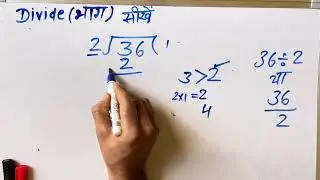 Divide (भाग) सीखें
2√36(1
2
3>2
2x1=2
4
36÷2
या
36
2